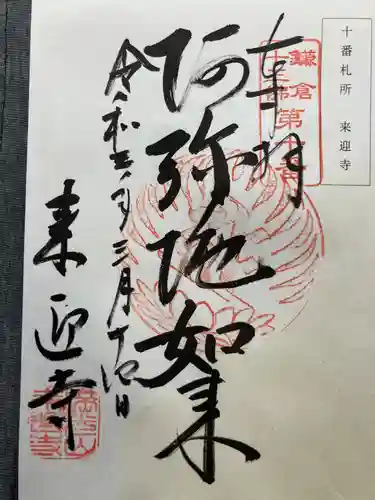 十番札所 来迎寺
奉拝
鎌倉
十三佛
第十番
阿弥陀如来
令和三年三月十四日
来迎寺